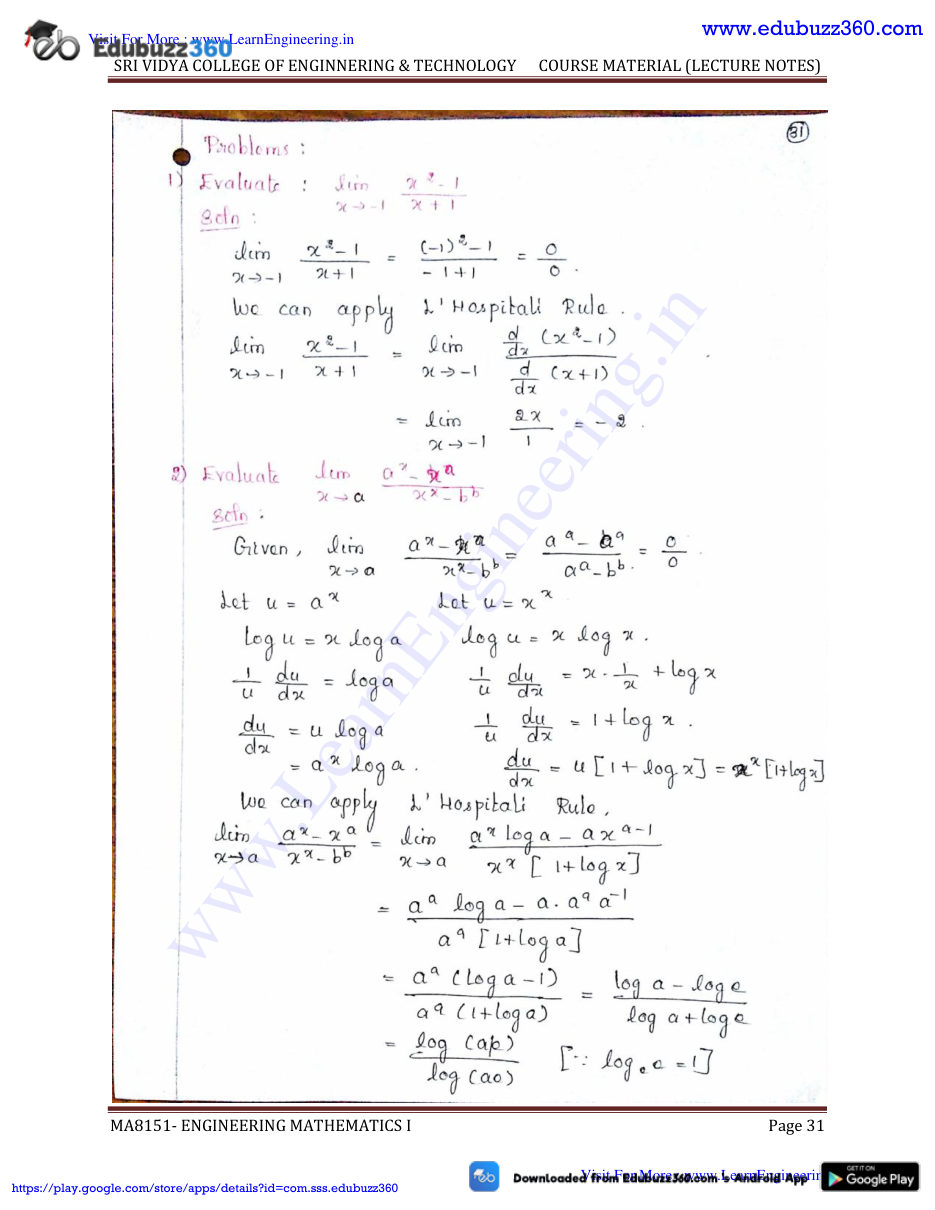 www.edubuzz360.com
Visit For More : www.LearnEngineering.in
Edubuzz360
SRI VIDYA COLLEGE OF ENGINNERING & TECHNOLOGY COURSE MATERIAL (LECTURE NOTES)
31
Problems :
1) Evaluate : lim x→-1 (x² - 1)/(x + 1)
Soln :
lim x→-1 (x² - 1)/(x + 1) = ((-1)² - 1)/(-1 + 1) = 0/0 .
We can apply L'Hospitali Rule .
lim x→-1 (x² - 1)/(x + 1) = lim x→-1 (d/dx (x² - 1))/(d/dx (x + 1))
= lim x→-1 2x/1 = - 2 .
2) Evaluate lim x→a (a^x - x^a)/(x^x - b^b)
Soln :
Given, lim x→a (a^x - x^a)/(x^x - b^b) = (a^a - a^a)/(a^a - b^b) = 0/0 .
Let u = a^x Let u = x^x
log u = x log a log u = x log x .
1/u du/dx = log a 1/u du/dx = x · 1/x + log x
du/dx = u log a 1/u du/dx = 1 + log x .
= a^x log a . du/dx = u [1 + log x] = x^x [1+log x]
We can apply L'Hospitali Rule,
lim x→a (a^x - x^a)/(x^x - b^b) = lim x→a (a^x log a - a x^(a-1))/(x^x [1+log x])
= (a^a log a - a . a^a a^-1)/(a^a [1+log a])
= (a^a (log a - 1))/(a^a (1+log a)) = (log a - log e)/(log a + log e)
= log (a/e)/log (ae) [∵ log_e e = 1]
www.LearnEngineering.in
MA8151- ENGINEERING MATHEMATICS I Page 31
https://play.google.com/store/apps/details?id=com.sss.edubuzz360
Downloaded from EduBuzz360.com 's Android App
Visit For More : www.LearnEngineerin
GET IT ON
Google Play